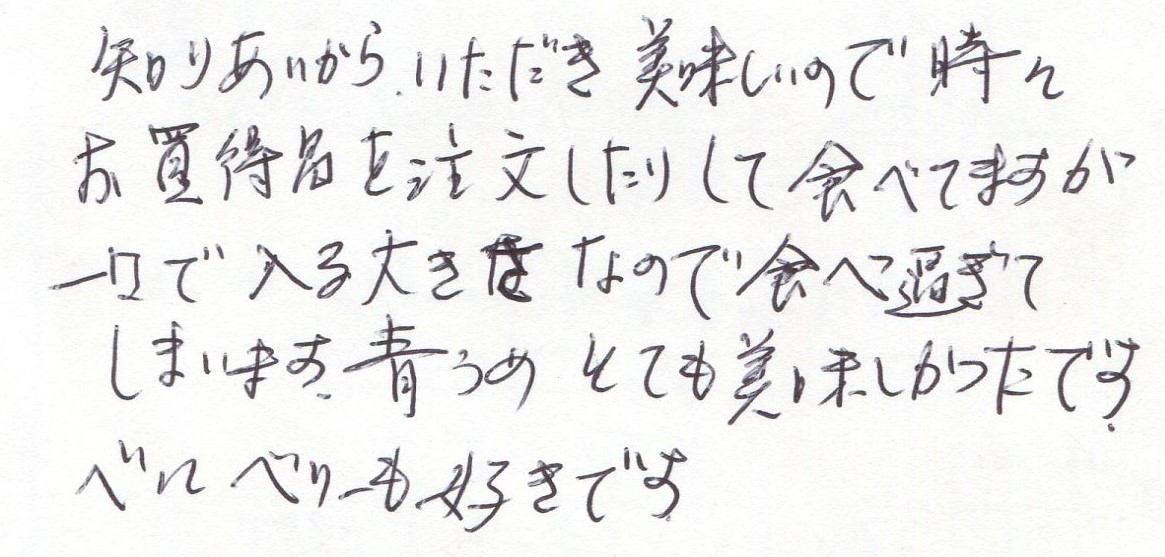 知りあいから、いただき美味しいので時々
お買得品を注文したりして食べてますが
一口で入る大きさなので食べ過ぎて
しまいます。青うめとても美味しかったです。
べにべりーも好きです